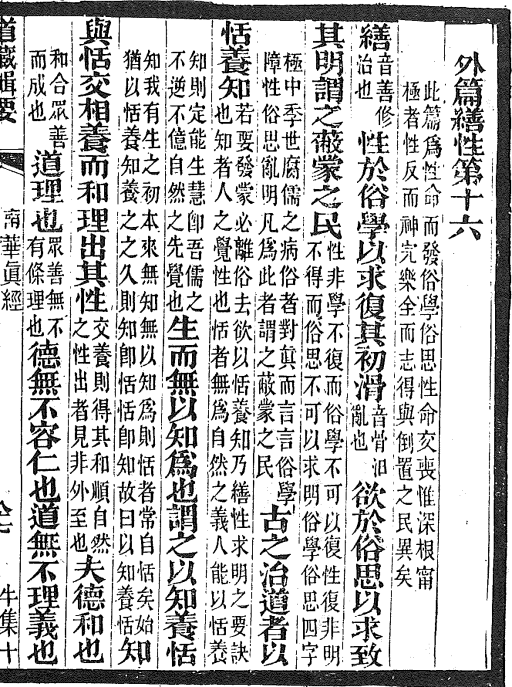 外篇繕性第十六
此篇爲性命而發俗學俗思性命交喪惟深根甯
極者性反而神完樂全而志得與倒置之民異矣
繕音善修治也性於俗學以求復其初滑音骨汩亂也欲於俗思以求致
其明謂之蔽蒙之民性非學不復而俗學不可以復性復非明不得而俗思不可以求明俗學俗思四字
極中季世腐儒之病俗者對真而言言俗學障性俗思亂明凡爲此者謂之蔽蒙之民古之治道者以
恬養知若要發蒙必離俗去欲以恬養知乃繕性求明之要訣也知者人之覺性也恬者無爲自然之義人能以恬養
知則定能生慧卽吾儒之不逆不億自然之先覺也生而無以知爲也謂之以知養恬
知我有生之初本來無知無以知爲則恬者常自恬矣始猶以恬養知養之之久則知卽恬恬卽知故曰以知養恬知
與恬交相養而和理出其性交養則得其和順自然之性出者見非外至也夫德和也
和合眾善而成也道理也眾善無不有條理也德無不容仁也道無不理義也
道藏輯要 南華眞經 牛集十